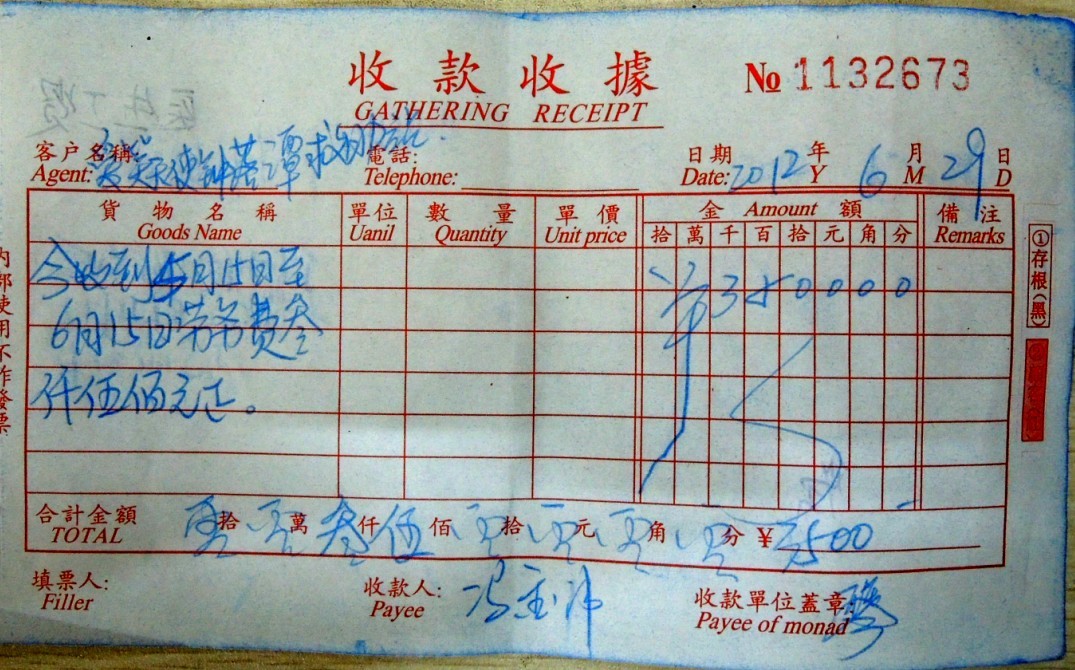 收款收據
№ 1132673
GATHERING RECEIPT
客户名稱: 電話: 日期 2012 年 6 月 29 日
Agent: 天使鍾落潭求助站. Telephone: Date: Y M D
貨物名稱 單位 數量 單價 金 Amount 額 備注
Goods Name Uanil Quantity Unit price 拾 萬 千 百 拾 元 角 分 Remarks
今收到5月15日至 ¥ 3 5 0 0 0 0
6月15日劳务费叁
仟伍佰元正。
合計金額 零拾零萬叁仟伍佰零拾零元零角零分 ¥ 3500
TOTAL
填票人: 收款人: 收款單位蓋章:
Filler Payee Payee of monad
①存根(黑)
内部使用不作發票